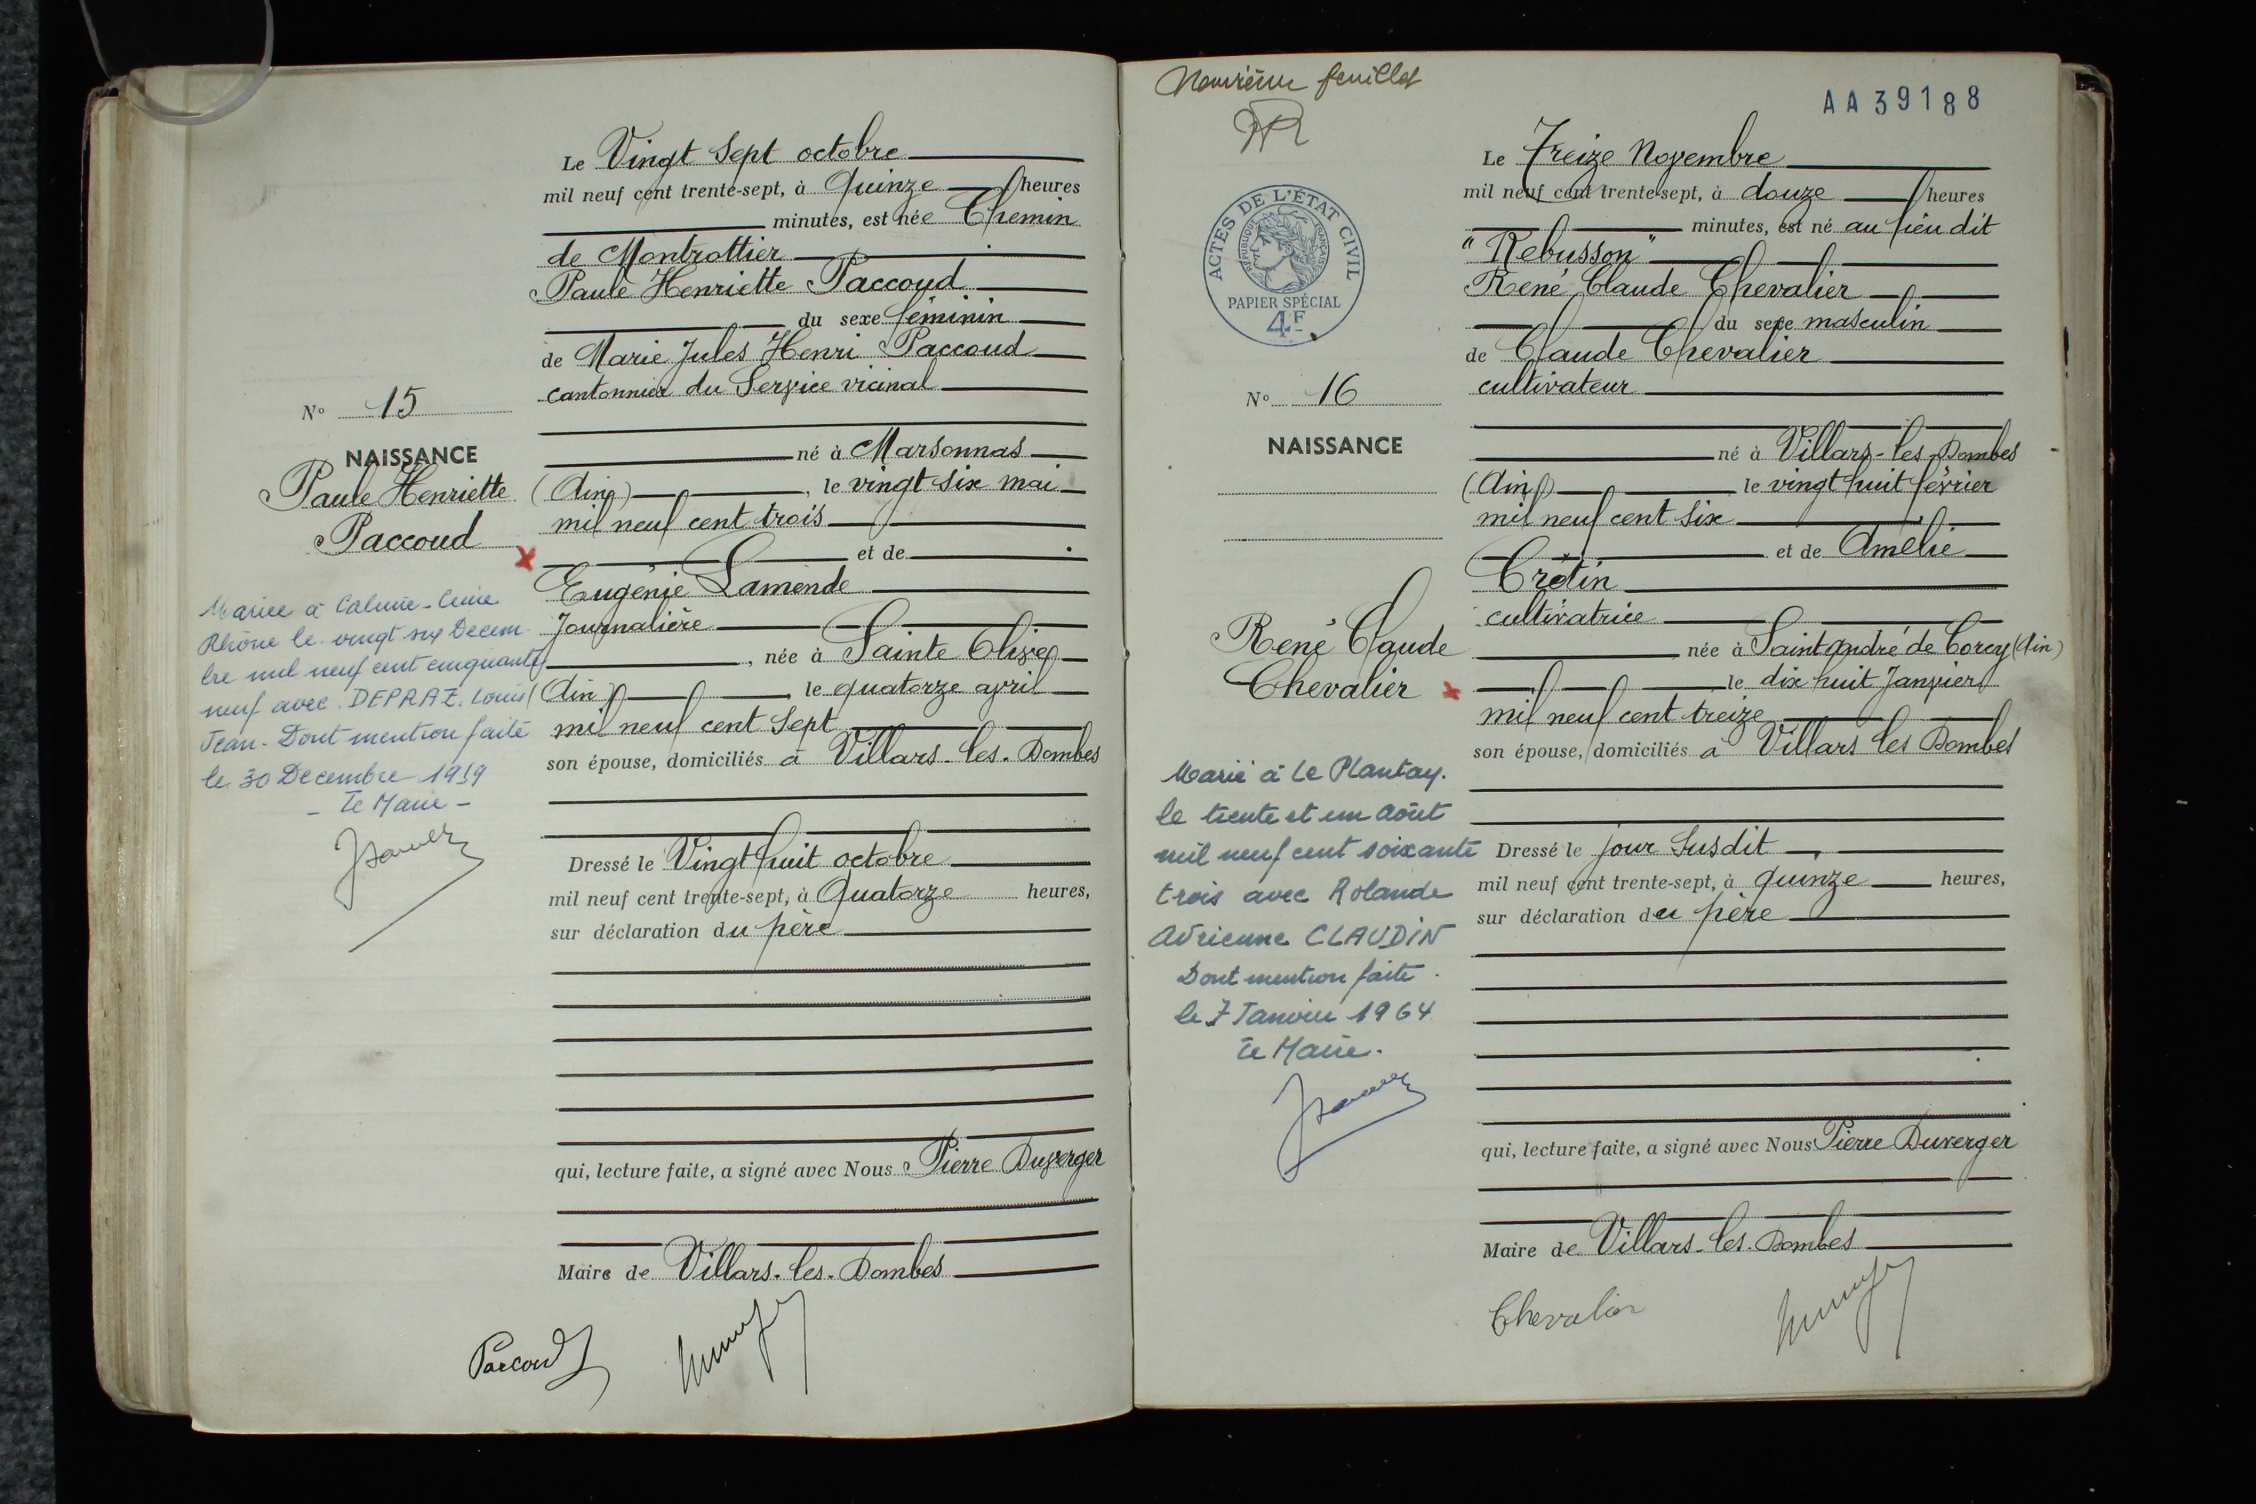 Le Vingt Sept octobre
mil neuf cent trente-sept, à quinze heures
minutes, est née Chemin
de Montrottier
Paule Henriette Paccoud
du sexe féminin
de Marie Jules Henri Paccoud
cantonnier du Service vicinal
N° 15
NAISSANCE
Paule Henriette
Paccoud
né à Marsonnas
(Ain), le vingt six mai
mil neuf cent trois
et de
Eugénie Lamende
Journalière
, née à Sainte Olive
(Ain), le quatorze avril
mil neuf cent Sept
son épouse, domiciliés à Villars-les-Dombes
Mariee à Caluire-Cuire
Rhône le vingt six Decem-
bre mil neuf cent cinquante
neuf avec DEPRAZ. Louis
Jean - Dont mention faite
le 30 Decembre 1959
- Le Maire -
Dressé le Vingt huit octobre
mil neuf cent trente-sept, à Quatorze heures,
sur déclaration du père
qui, lecture faite, a signé avec Nous Pierre Duverger
Maire de Villars-les-Dombes
Paccoud
Neuvième feuillet
AA39188
ACTES DE L'ÉTAT CIVIL
RÉPUBLIQUE FRANÇAISE
PAPIER SPÉCIAL
4F
Le Treize Novembre
mil neuf cent trente-sept, à douze heures
minutes, est né au lieu dit
"Rebusson"
René Claude Chevalier
du sexe masculin
de Claude Chevalier
cultivateur
N° 16
NAISSANCE
né à Villars-les-Dombes
(Ain) le vingt huit février
mil neuf cent six
et de Amélie
Crétin
cultivatrice
née à Saint André de Corcy (Ain)
le dix huit Janvier
mil neuf cent treize
son épouse, domiciliés à Villars les Dombes
René Claude
Chevalier
Marié à Le Plantay.
le trente et un Août
mil neuf cent soixante
trois avec Rolande
Adrienne CLAUDIN
Dont mention faite
le 7 Janvier 1964
Le Maire.
Dressé le jour Susdit
mil neuf cent trente-sept, à quinze heures,
sur déclaration du père
qui, lecture faite, a signé avec Nous Pierre Duverger
Maire de Villars-les-Dombes
Chevalier